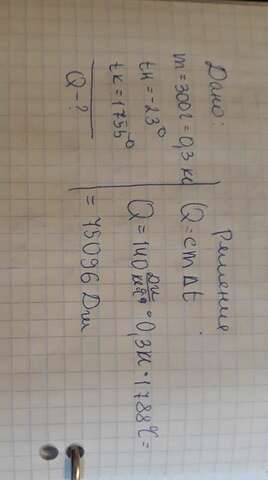 Дано:
m=300г=0,3 кг
tн=-23°
tк=1755°
Q-?
Решение
Q=cmΔt
Q=140 Дж/кг·°C · 0,3кг · 1788°C=
= 75096 Дж